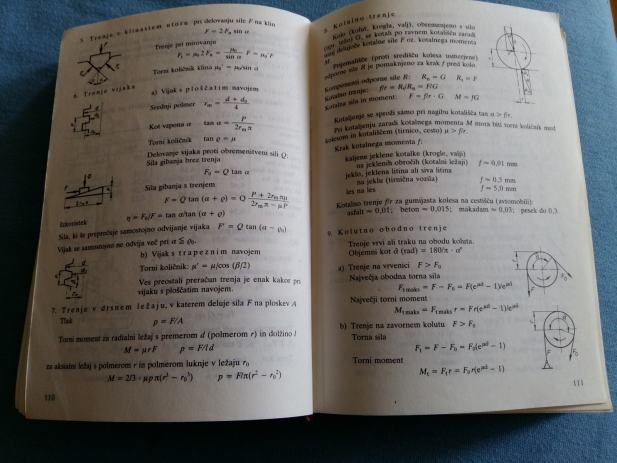 5. Trenje v klinastem utoru pri delovanju sile F na klin
F = 2Fₙ sin α
Trenje pri mirovanju
Fₜ = μ₀ 2 Fₙ = μ₀/sin α · F = μ₀′ F
Torni količnik klina μ₀′ = μ₀/sin α
6. Trenje vijaka
a) Vijak s ploščatim navojem
Srednji polmer rₘ = (d + d₀)/4
Kot vzpona α tan α = P/(2rₘπ)
Torni količnik tan ϱ = μ
Delovanje vijaka proti obremenitveni sili Q:
Sila gibanja brez trenja
F₀ = Q tan α
Sila gibanja s trenjem
F = Q tan (α + ϱ) = Q (P + 2rₘπμ)/(2rₘπ − μP)
Izkoristek
η = F₀/F = tan α/tan (α + ϱ)
Sila, ki še preprečuje samostojno odvijanje vijaka F′ = Q tan (α − ϱ)
Vijak se samostojno ne odvija več pri α ≦ ϱ₀.
b) Vijak s trapeznim navojem
Torni količnik: μ′ = μ/cos (β/2)
Ves preostali preračun trenja je enak kakor pri
vijaku s ploščatim navojem.
7. Trenje v drsnem ležaju, v katerem deluje sila F na ploskev A
Tlak p = F/A
Torni moment za radialni ležaj s premerom d (polmerom r) in dolžino l
M = μrF p = F/ld
za aksialni ležaj s polmerom r in polmerom luknje v ležaju r₀
M = 2/3 · μpπ(r³ − r₀³) p = F/π(r² − r₀²)
110
8. Kotalno trenje
Kolo (kolut, krogla, valj), obremenjeno s silo
G, se kotali po ravnem kotališču zaradi
delujoče kotalne sile F oz. kotalnega momenta
M.
Prijemališče (proti središču kolesa usmerjene)
odporne sile R je pomaknjeno za krak f pred kolo.
Komponenti odporne sile R: Rₙ = G Rₜ = F
Kotalna trenje: f/r = Rₜ/Rₙ = F/G
Kotalna sila in moment: F = f/r · G M = fG
Kotaljenje se sproži samo pri nagibu kotališča tan α > f/r.
Pri kotaljenju zaradi kotalnega momenta M mora biti torni količnik med
kolesom in kotališčem (tirnico, cesto) μ > f/r.
Krak kotalnega momenta f:
kaljene jeklene kotalke (krogle, valji)
na jeklenih obročih (kotalni ležaji) f ≈ 0,01 mm
jeklo, jeklena litina ali siva litina
na jeklu (tirnična vozila) f ≈ 0,5 mm
les na les f ≈ 5,0 mm
Kotalno trenje f/r za gumijasta kolesa na cestišču (avtomobili):
asfalt ≈ 0,01; beton ≈ 0,015; makadam ≈ 0,03; pesek do 0,3.
9. Kolutno obodno trenje
Trenje vrvi ali traku na obodu koluta.
Objemni kot α̂ (rad) = 180/π · α°
a) Trenje na vrvenici F > F₀
Največja obodna torna sila
Fₜ ₘₐₖₛ = F − F₀ = F(e^μα̂ − 1)/e^μα̂
Največji torni moment
Mₜ ₘₐₖₛ = Fₜ ₘₐₖₛ r = Fr(e^μα̂ − 1)/e^μα̂
b) Trenje na zavornem kolutu F > F₀
Torna sila
Fₜ = F − F₀ = F₀(e^μα̂ − 1)
Torni moment
Mₜ = Fₜ r = F₀ r(e^μα̂ − 1)
111